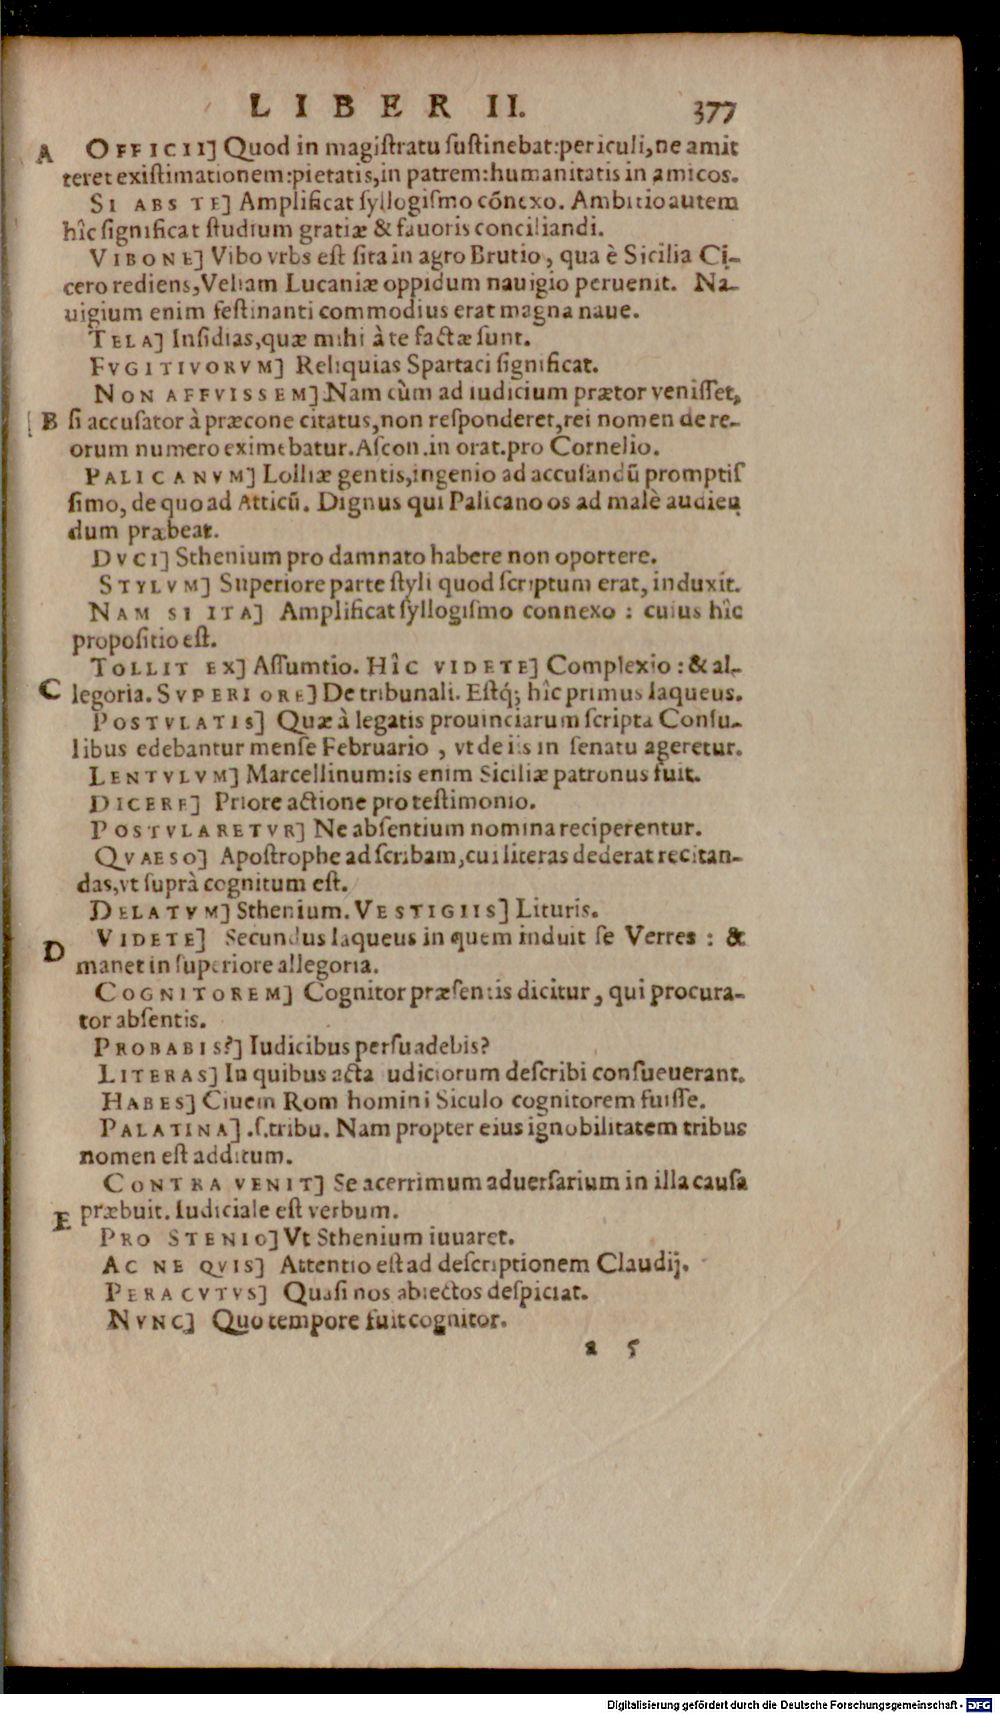 LIBER II. 377
A OFFICII] Quod in magiſtratu ſuſtinebat:periculi,ne amit
teret exiſtimationem:pietatis,in patrem:humanitatis in amicos.
SI ABS TE] Amplificat ſyllogiſmo cōnexo. Ambitio autem
hîc ſignificat ſtudium gratiæ & fauoris conciliandi.
VIBONE] Vibo vrbs eſt ſita in agro Brutio, qua è Sicilia Ci-
cero rediens,Veliam Lucaniæ oppidum nauigio peruenit. Na-
uigium enim feſtinanti commodius erat magna naue.
TELA] Inſidias,quæ mihi à te factæ ſunt.
FVGITIVORVM] Reliquias Spartaci ſignificat.
NON AFFVISSEM] Nam cùm ad iudicium prætor veniſſet,
B ſi accuſator à præcone citatus,non reſponderet,rei nomen de re-
orum numero eximebatur.Aſcon.in orat.pro Cornelio.
PALICANVM] Lolliæ gentis,ingenio ad accuſandū promptiſ
ſimo, de quo ad Atticū. Dignus qui Palicano os ad malè audien
dum præbeat.
DVCI] Sthenium pro damnato habere non oportere.
STYLVM] Superiore parte ſtyli quod ſcriptum erat, induxit.
NAM SI ITA] Amplificat ſyllogiſmo connexo : cuius hîc
propoſitio eſt.
TOLLIT EX] Aſſumtio. HÎC VIDETE] Complexio : & al-
C legoria. SVPERIORE] De tribunali. Eſtq́; hîc primus laqueus.
POSTVLATIS] Quæ à legatis prouinciarum ſcripta Conſu-
libus edebantur menſe Februario , vt de iis in ſenatu ageretur.
LENTVLVM] Marcellinum:is enim Siciliæ patronus fuit.
DICERE] Priore actione pro teſtimonio.
POSTVLARETVR] Ne abſentium nomina reciperentur.
QVAESO] Apoſtrophe ad ſcribam,cui literas dederat recitan-
das,vt ſuprà cognitum eſt.
DELATVM] Sthenium. VESTIGIIS] Lituris.
D VIDETE] Secundus laqueus in quem induit ſe Verres : &
manet in ſuperiore allegoria.
COGNITOREM] Cognitor præſentis dicitur, qui procura-
tor abſentis.
PROBABIS?] Iudicibus perſuadebis?
LITERAS] In quibus acta udiciorum deſcribi conſueuerant.
HABES] Ciuem Rom homini Siculo cognitorem fuiſſe.
PALATINA] .ſ.tribu. Nam propter eius ignobilitatem tribus
nomen eſt additum.
CONTRA VENIT] Se acerrimum aduerſarium in illa cauſa
E præbuit. Iudiciale eſt verbum.
PRO STENIO] Vt Sthenium iuuaret.
AC NE QVIS] Attentio eſt ad deſcriptionem Claudij.
PERACVTVS] Quaſi nos abiectos deſpiciat.
NVNC] Quo tempore fuit cognitor.
a 5
Digitalisierung gefördert durch die Deutsche Forschungsgemeinschaft - DFG